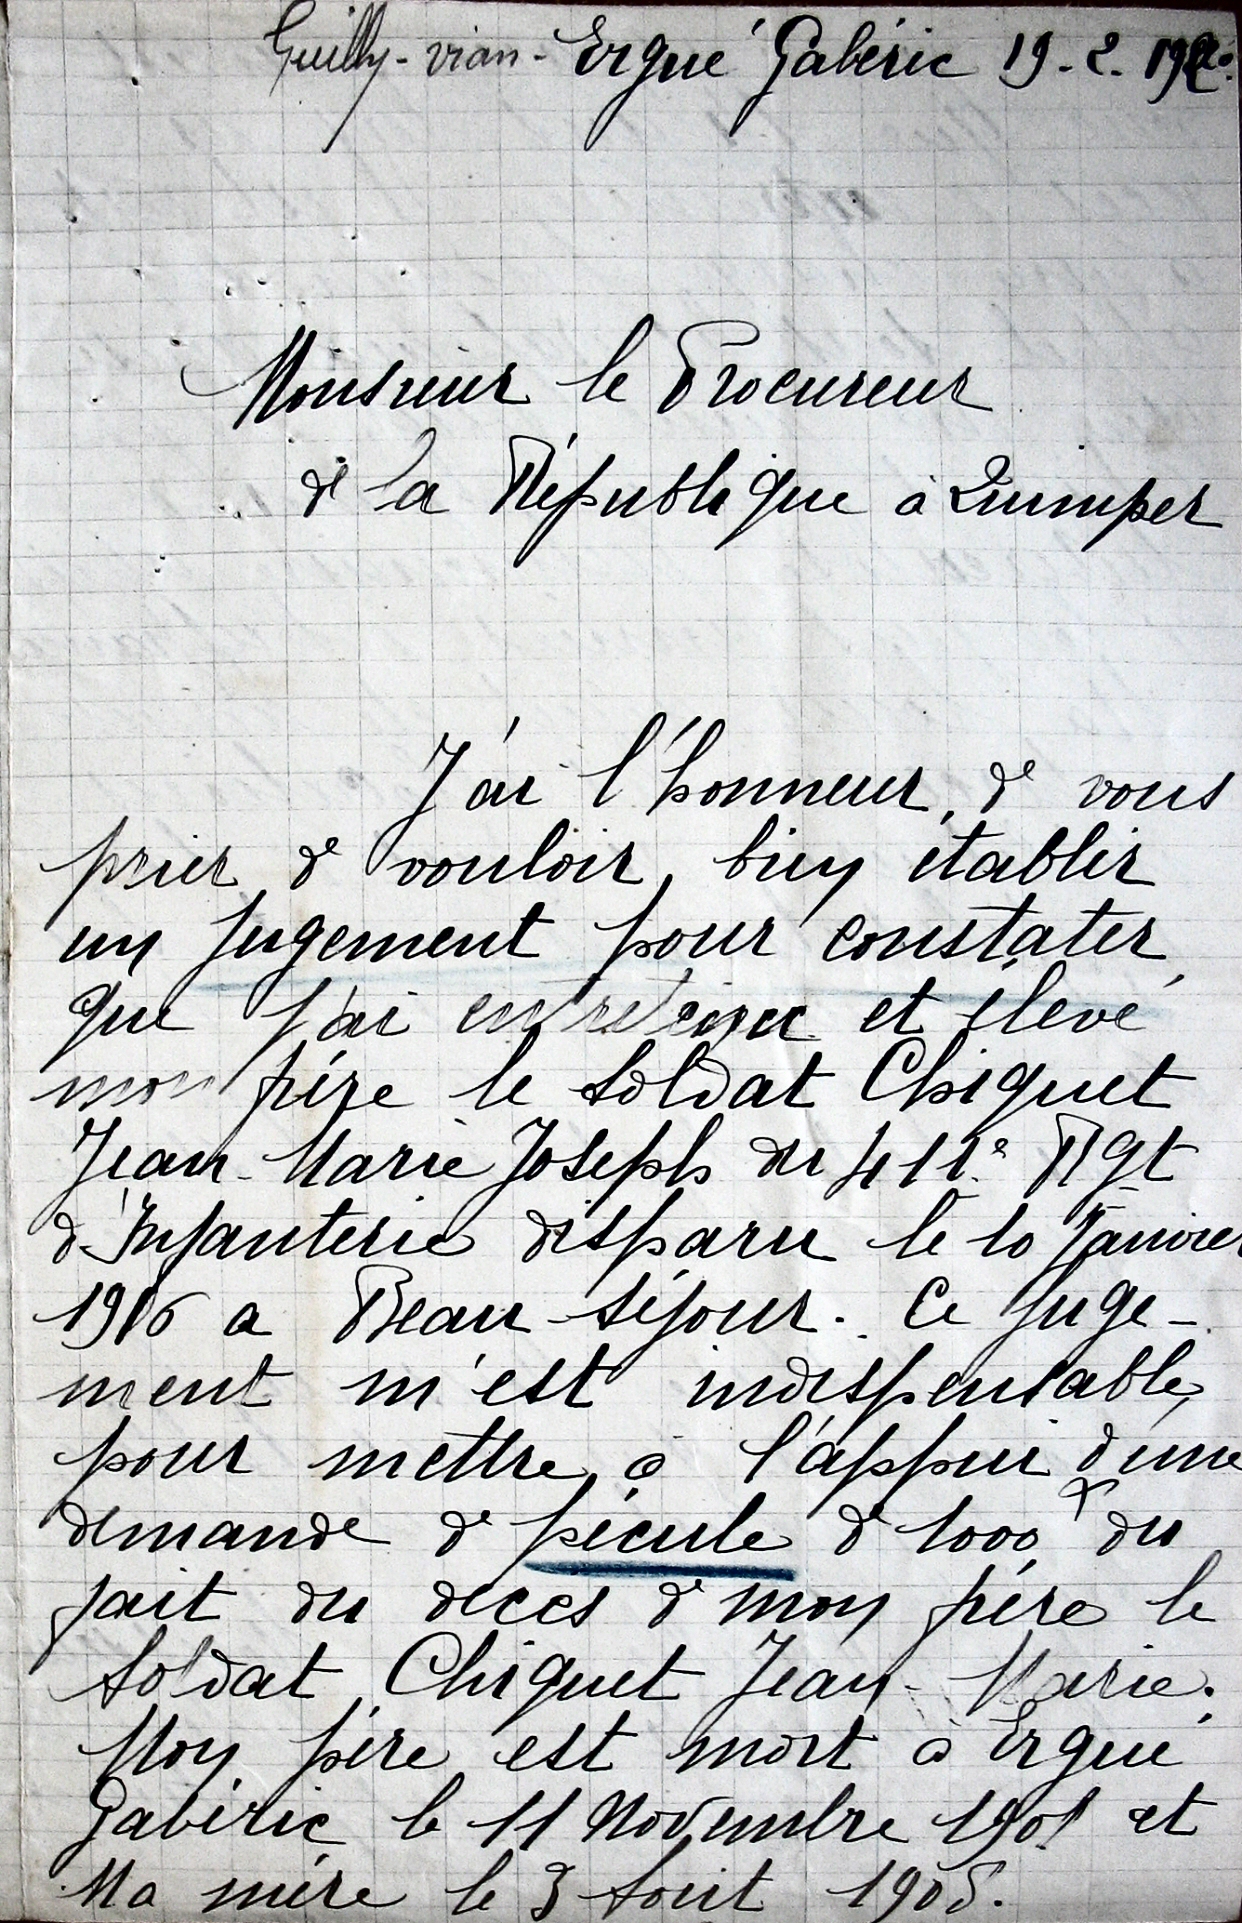 Guilly-vian- Ergué Gabéric 19-2. 192
Monsieur le Procureur
de la République à Quimper
J'ai l'honneur de vous
prier de vouloir bien établir
un jugement pour constater
que j'ai entretenu et élevé
mon frère le soldat Chiquet
Jean-Marie Joseph du 411e Rgt
d'Infanterie disparu le 10 Janvier
1916 a Beau-séjour. Ce juge-
ment m'est indispensable
pour mettre à l'appui d'une
demande de pécule de 1000 f du
fait du décès de mon frère le
soldat Chiquet Jean-Marie.
Mon père est mort à Ergué
Gabéric le 11 Novembre 1901 et
Ma mère le 3 Aout 1905.